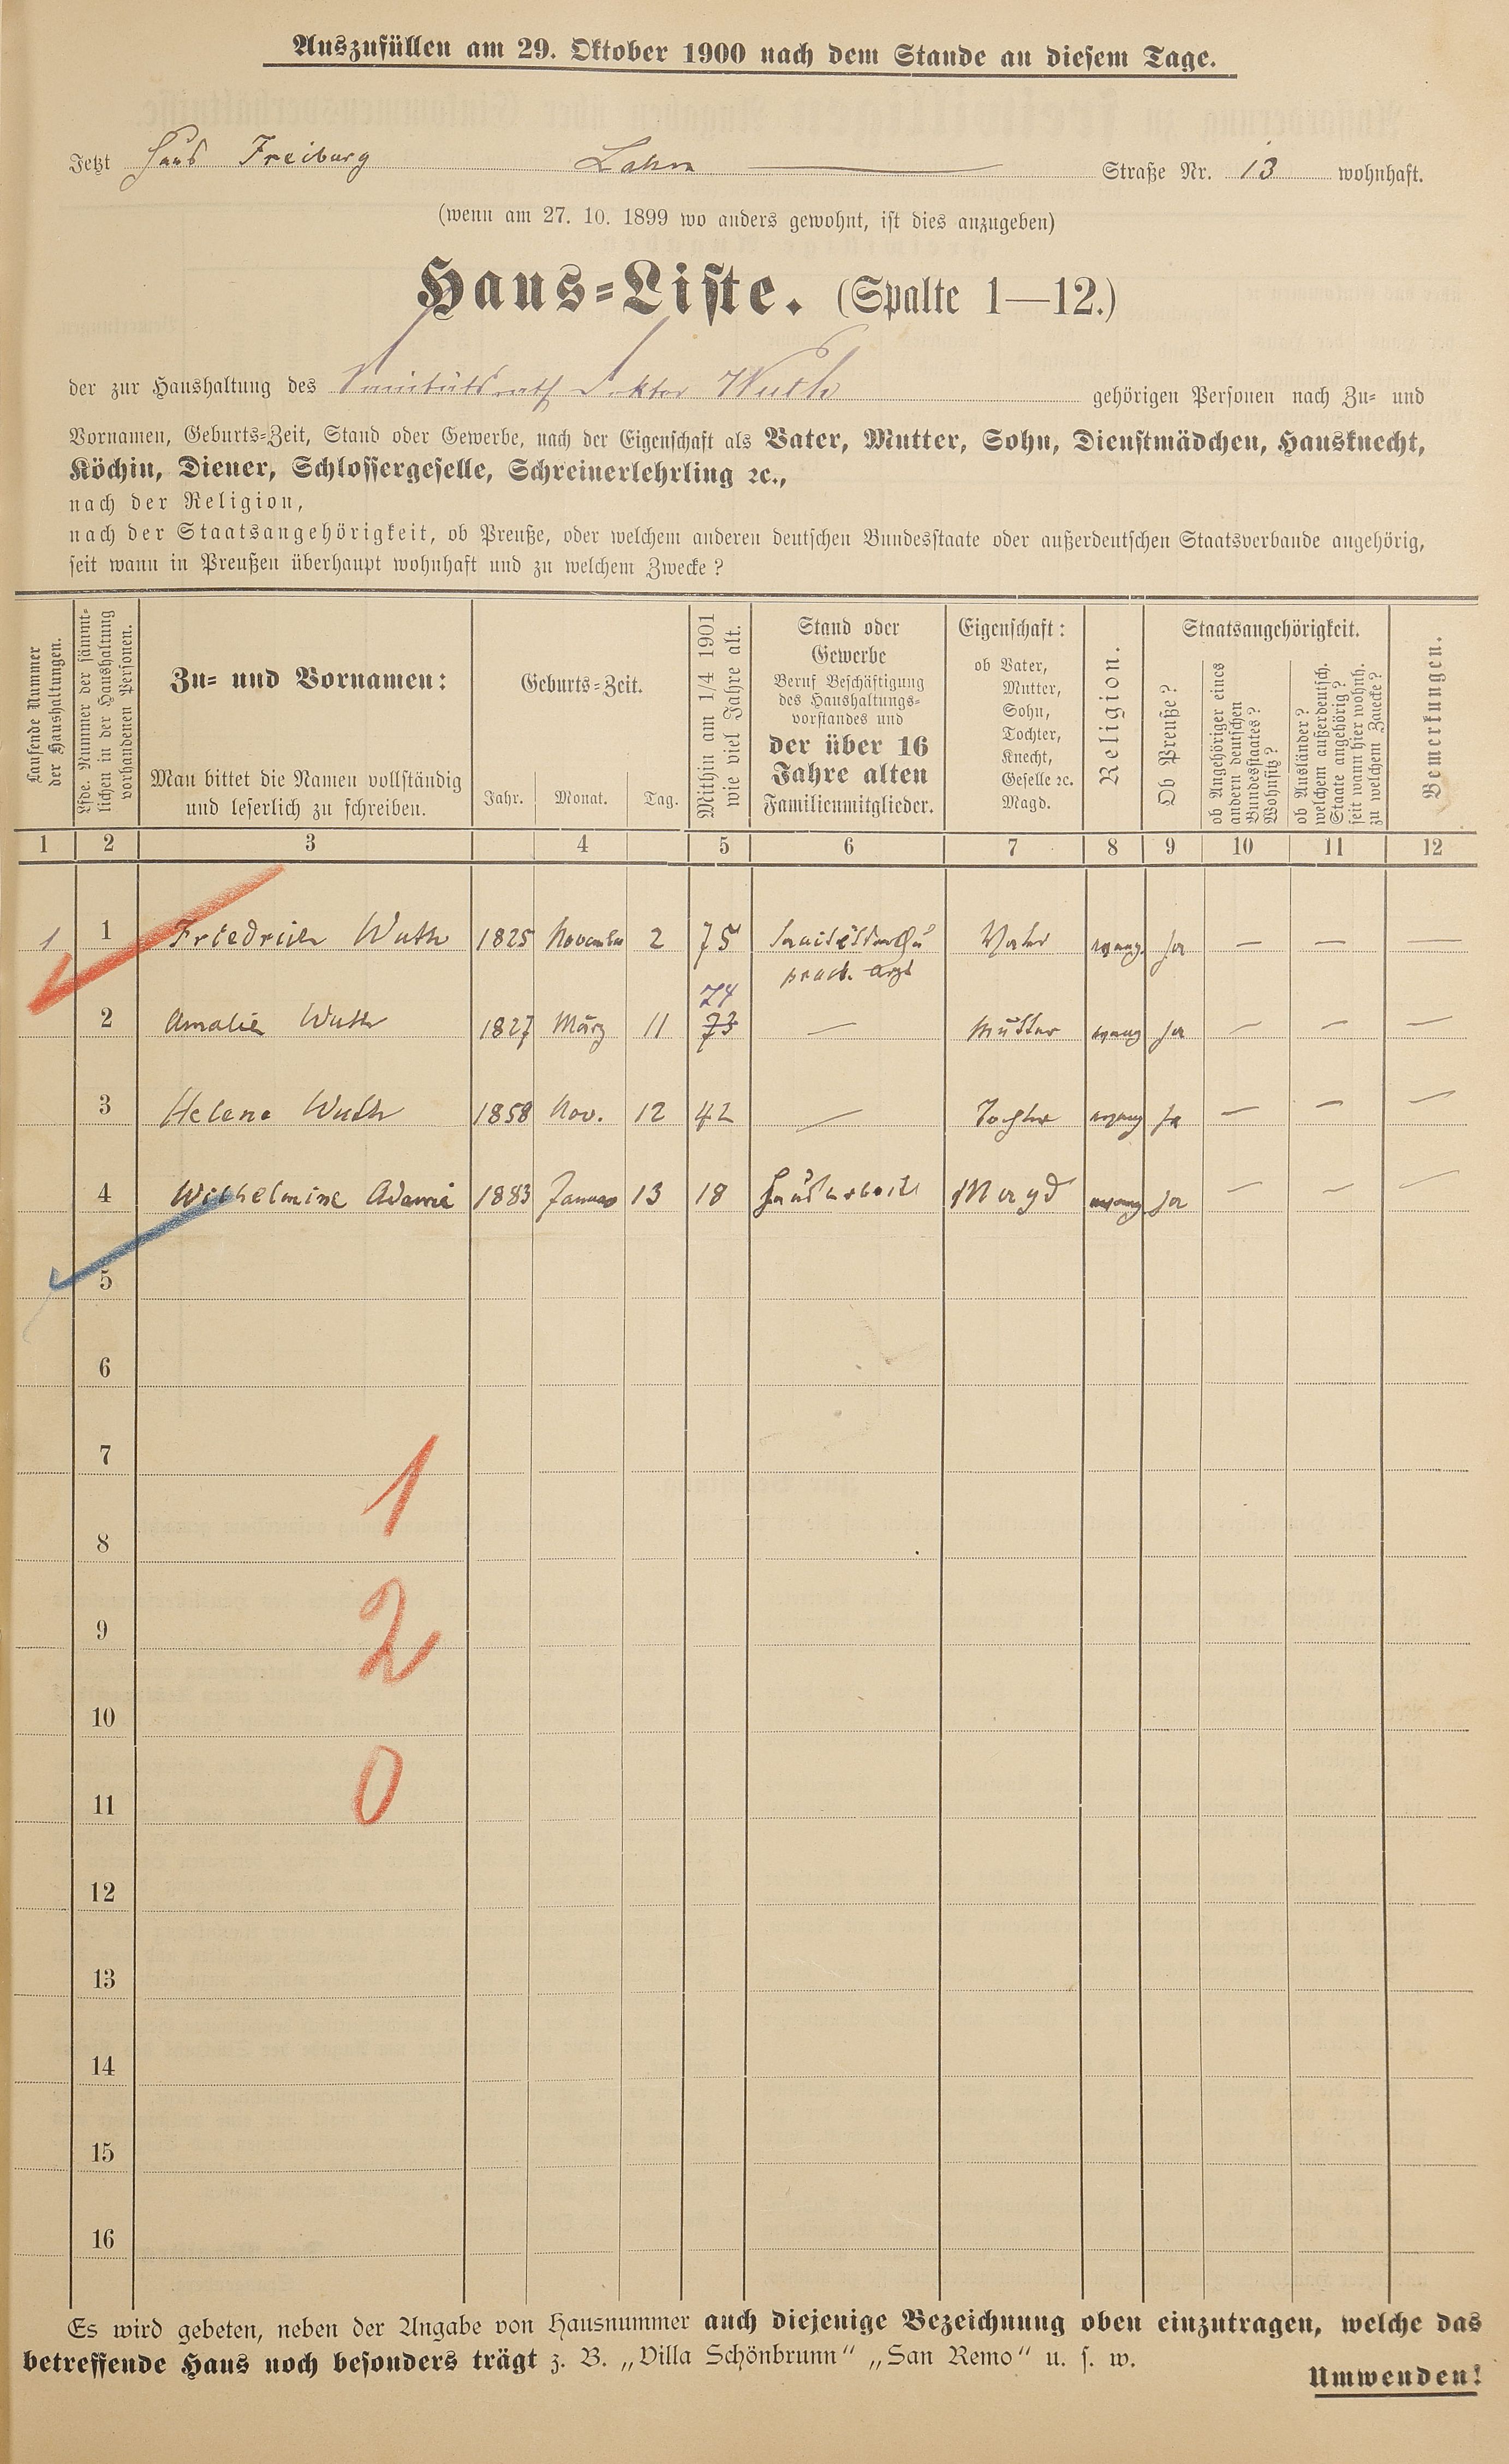 Auszufüllen am 29. Oktober 1900 nach dem Stande an diesem Tage.
Jetzt Haus Freiburg Lahn Straße Nr. 13 wohnhaft.
(wenn am 27. 10. 1899 wo anders gewohnt, ist dies anzugeben)
Haus=Liste. (Spalte 1—12.)
der zur Haushaltung des Sanitätsrath Doktor Wuth gehörigen Personen nach Zu= und
Vornamen, Geburts=Zeit, Stand oder Gewerbe, nach der Eigenschaft als Vater, Mutter, Sohn, Dienstmädchen, Hausknecht,
Köchin, Diener, Schlossergeselle, Schreinerlehrling ꝛc.,
nach der Religion,
nach der Staatsangehörigkeit, ob Preuße, oder welchem anderen deutschen Bundesstaate oder außerdeutschen Staatsverbande angehörig,
seit wann in Preußen überhaupt wohnhaft und zu welchem Zwecke?
Laufende Nummer
der Haushaltungen.
Lfde. Nummer der sämmt=
lichen in der Haushaltung
vorhandenen Personen.
Zu= und Vornamen:
Man bittet die Namen vollständig
und leserlich zu schreiben.
Geburts=Zeit.
Jahr. Monat. Tag.
Mithin am 1/4 1901
wie viel Jahre alt.
Stand oder
Gewerbe
Beruf Beschäftigung
des Haushaltungs=
vorstandes und
der über 16
Jahre alten
Familienmitglieder.
Eigenschaft:
ob Vater,
Mutter,
Sohn,
Tochter,
Knecht,
Geselle ꝛc.
Magd.
Religion.
Staatsangehörigkeit.
Ob Preuße?
ob Angehöriger eines
andern deutschen
Bundesstaates?
Wohnsitz?
ob Ausländer?
welchem außerdeutsch.
Staate angehörig?
seit wann hier wohnh.
zu welchem Zwecke?
Bemerkungen.
1 2 3 4 5 6 7 8 9 10 11 12
1 1 Friedrich Wuth 1825 November 2 75 Vater evang. Ja — — —
pract. Arzt
74
2 Amalie Wuth 1827 März 11 73 — Mutter evang Ja — — —
3 Helene Wuth 1858 Nov. 12 42 — Tochter evang Ja — — —
4 Wilhelmine Adami 1883 Januar 13 18 Hausarbeit Magd evang Ja — — —
5
6
7
1
8
9
2
10
11
0
12
13
14
15
16
Es wird gebeten, neben der Angabe von Hausnummer auch diejenige Bezeichnung oben einzutragen, welche das
betreffende Haus noch besonders trägt z. B. „Villa Schönbrunn“ „San Remo“ u. s. w.
Umwenden!